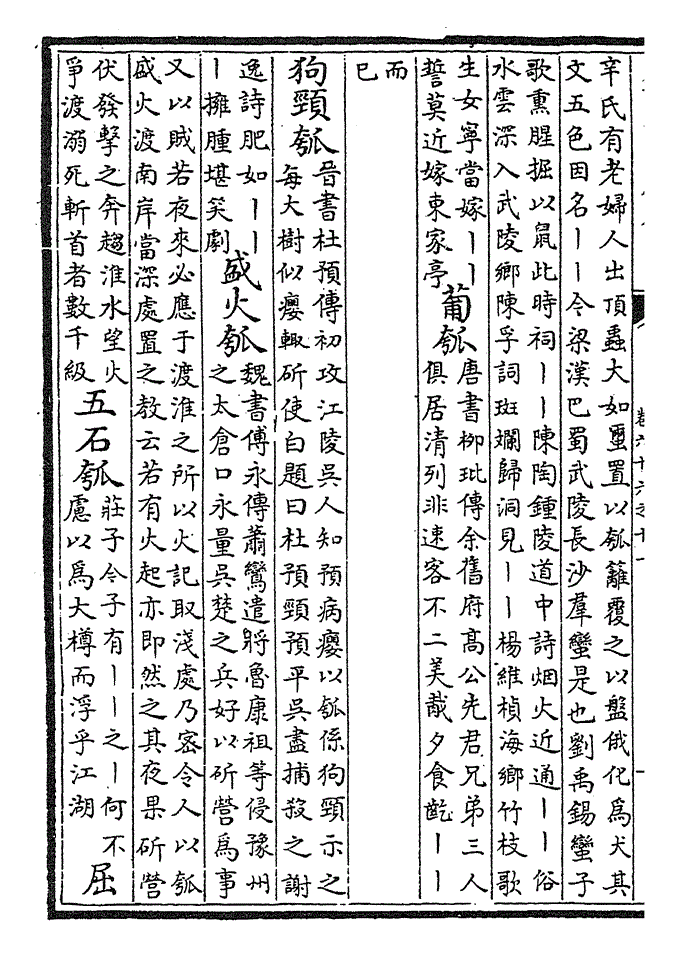 卷六十六之十一
辛氏有老婦人出頂蟲大如蠒置以瓠籬覆之以盤俄化爲犬其
文五色因名丨丨今梁漢巴蜀武陵長沙羣蠻是也劉禹錫蠻子
歌熏腥掘以鼠此時祠丨丨陳陶鍾陵道中詩烟火近通丨丨俗
水雲深入武陵鄉陳孚詞斑斕歸洞見丨丨楊維楨海鄉竹枝歌
生女寧當嫁丨丨
誓莫近嫁東家亭
葡瓠
唐書柳玭傳余舊府高公先君兄弟三人
俱居清列非速客不二美胾夕食齕丨丨
而
已
狗頸瓠
晉書杜預傳初攻江陵吳人知預病癭以瓠係狗頸示之
每大樹似癭輒斫使白題曰杜預頸預平吳盡捕殺之謝
逸詩肥如丨丨
丨擁腫堪笑劇
盛火瓠
魏書傅永傳蕭鸞遣將魯康祖等侵豫州
之太倉口永量吳楚之兵好以斫營爲事
又以賊若夜來必應于渡淮之所以火記取淺處乃密令人以瓠
盛火渡南岸當深處置之教云若有火起亦即然之其夜果斫營
伏發擊之奔趨淮水望火
爭渡溺死斬首者數千級
五石瓠
莊子今子有丨丨之丨何不
慮以爲大樽而浮乎江湖
屈